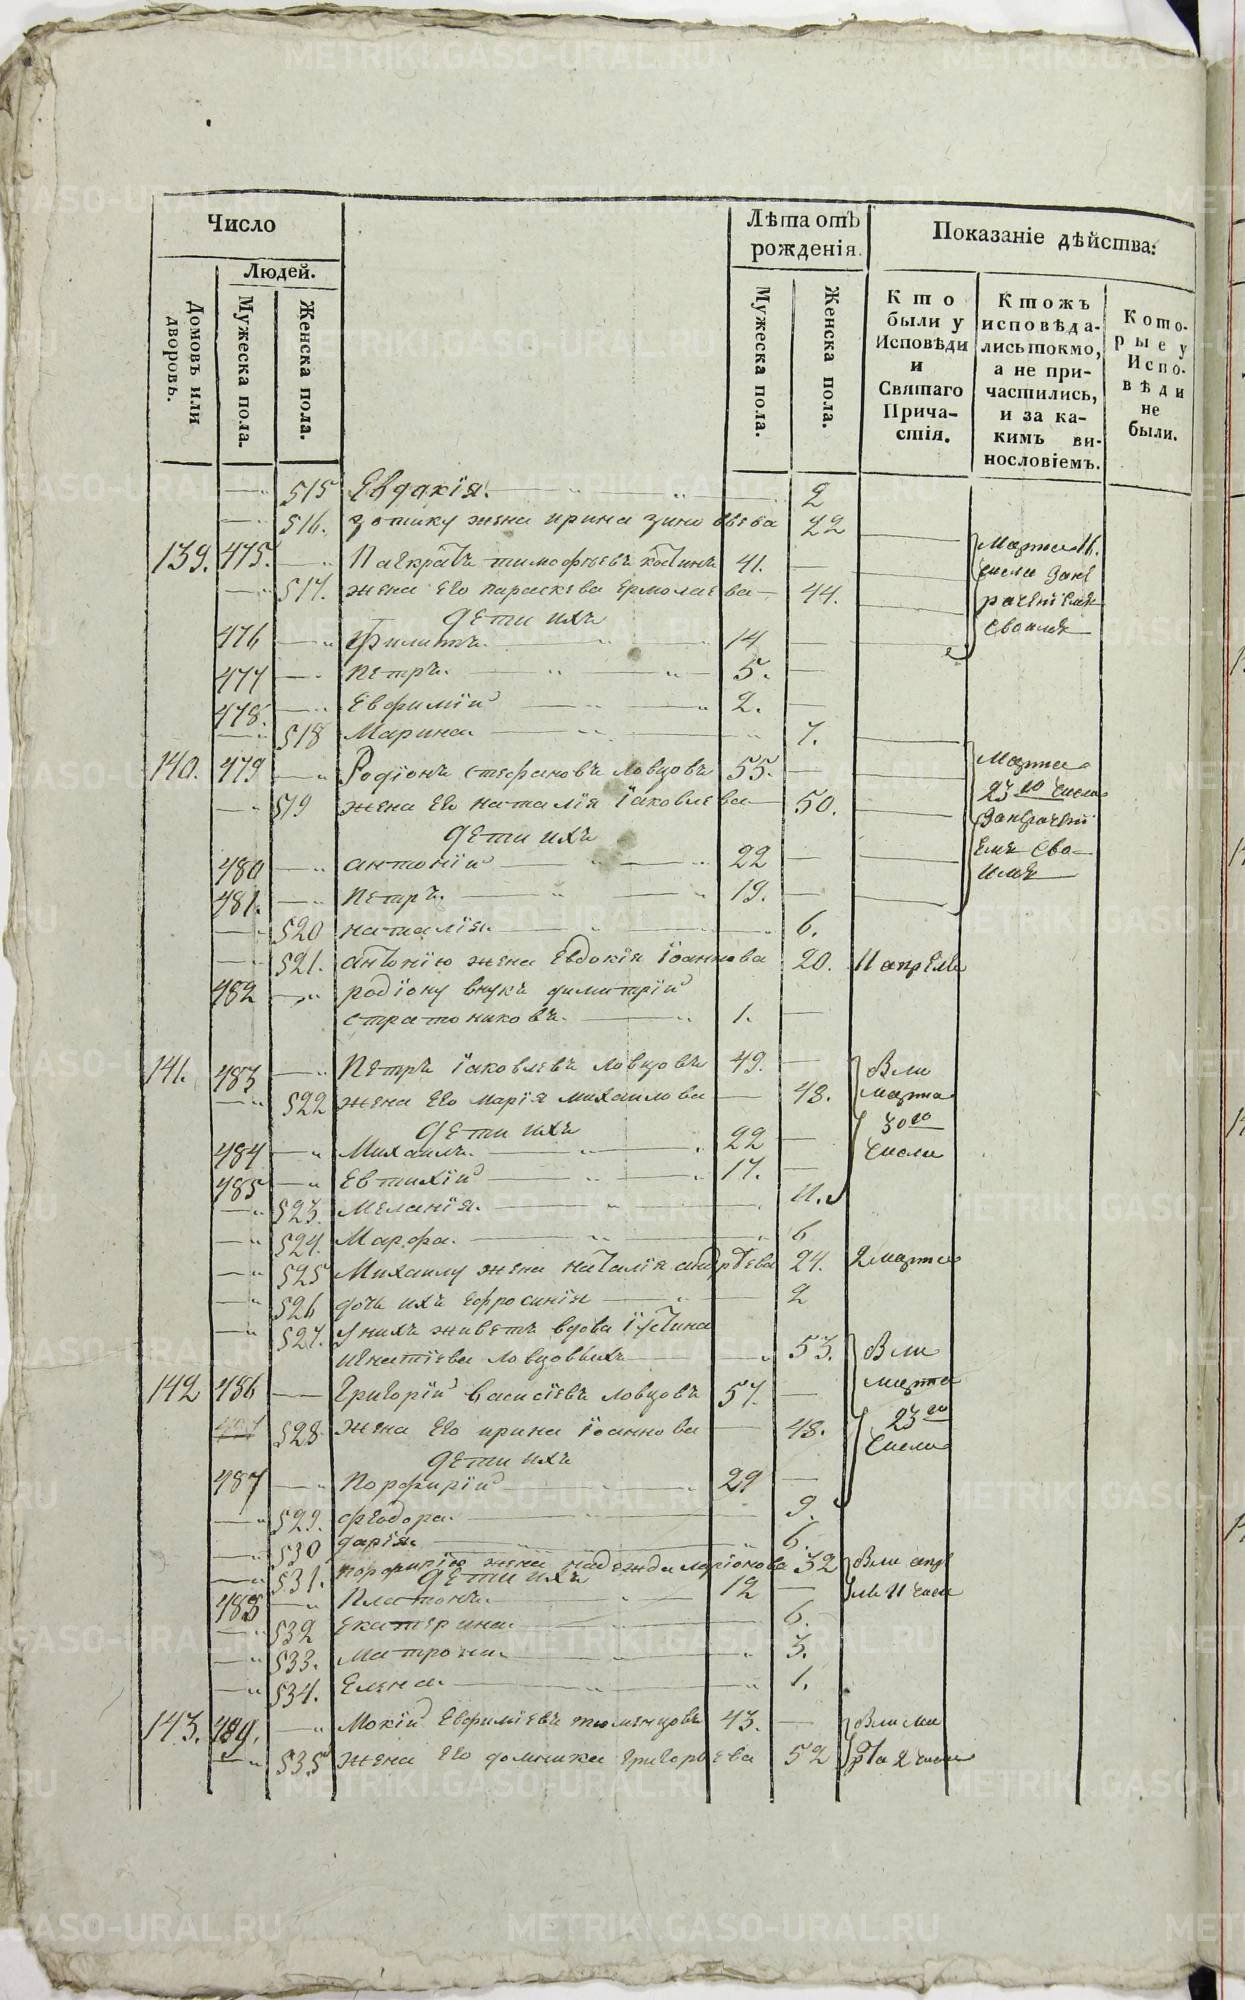 Число
Людей.
Домовъ или дворовъ.
Мужеска пола.
Женска пола.
Лѣта отъ рожденія.
Мужеска пола.
Женска пола.
Показаніе дѣйства:
Кто были у Исповѣди и Святаго Причастія.
Ктожъ исповѣдались токмо, а не причастились, и за какимъ винословіемъ.
Которые у Исповѣди не были.
515 Евдокія. 2
516. зотику жена ирина зиновьева 22
139. 475. Панкратъ тимофѣевъ 41.
517. жена его параскева ермолаева 44.
Марта 16. числа
своимъ
дѣти ихъ
476 Филиппъ. 14
477 петръ. 5.
478. Евфимій 2.
518 Марина. 7.
140. 479 Родіонъ стефановъ ловцовъ 55.
519 жена его наталія іаковлева 50.
Марта 23го числа
своимъ
дѣти ихъ
480 антоній 22
481. петръ. 19.
520 наталія. 6.
521. антонію жена Евдокія іоаннова 20. 11 апреля
482 родіону внукъ димитрій
стратониковъ. 1.
141. 483 Петръ іаковлевъ ловцовъ 49.
522 жена его марія михаилова 48.
Были марта 30го числа
дѣти ихъ
484 Михаилъ. 22
485 евтихій 17.
523. Меланія. 11.
524. Марфа. 6
525 Михаилу жена наталія андрѣева 24. 2 марта
526 дочь ихъ ефросинія 2
527. У нихъ живетъ вдова іустина
игнатіева ловцовыхъ 53.
Были марта 23го числа
142 486 Григорій василіевъ ловцовъ 57.
528 жена его ирина іоаннова 48.
дѣти ихъ
487 Порфирій 29
529. феодора. 9.
530 дарія. 6.
531. порфирію жена надежда ларіонова 32 были апреля 11 числа
дѣти ихъ
488 Платонъ. 12
532 екатерина. 6.
533. Матрона. 3.
534. Елена. 1.
143. 489. Мокій Евфиміевъ тюменцовъ 43.
535 жена его домника григорьева 52
были марта 2 числа
METRIKI.GASO-URAL.RU